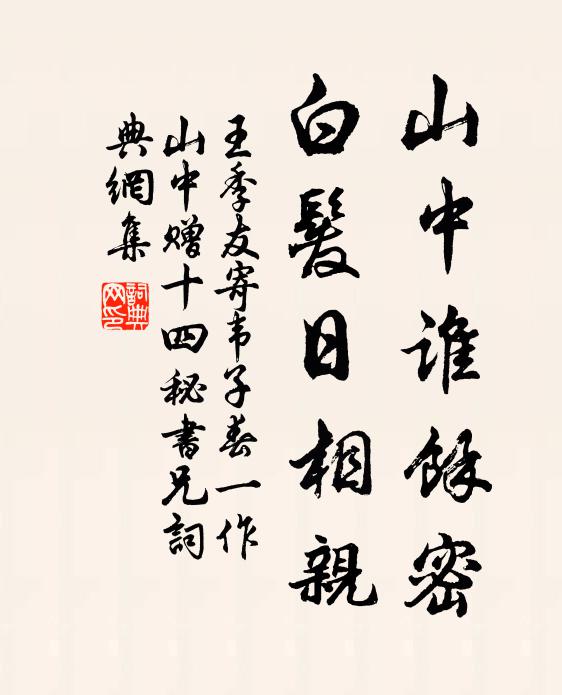 山中誰餘密
白髮日相親
王季友寄韦子春一作
山中赠十四秘書兄詞
典網集
詞典
网印